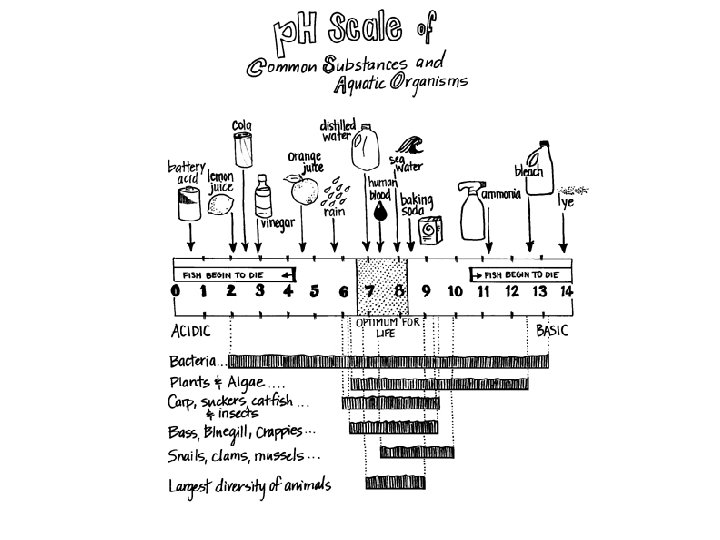 pH Scale of
Common Substances and
Aquatic Organisms
cola
distilled
water
sea
water
battery
acid
lemon
juice
vinegar
orange
juice
rain
human
blood
baking
soda
ammonia
bleach
lye
FISH BEGIN TO DIE
FISH BEGIN TO DIE
0 1 2 3 4 5 6 7 8 9 10 11 12 13 14
ACIDIC
OPTIMUM FOR
LIFE
BASIC
Bacteria...
Plants & Algae.....
Carp, suckers, catfish...
& insects
Bass, Bluegill, Crappies...
Snails, clams, mussels...
Largest diversity of animals